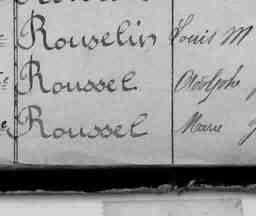 Rouselin Louis M
Roussel Adolphe
Roussel Marie